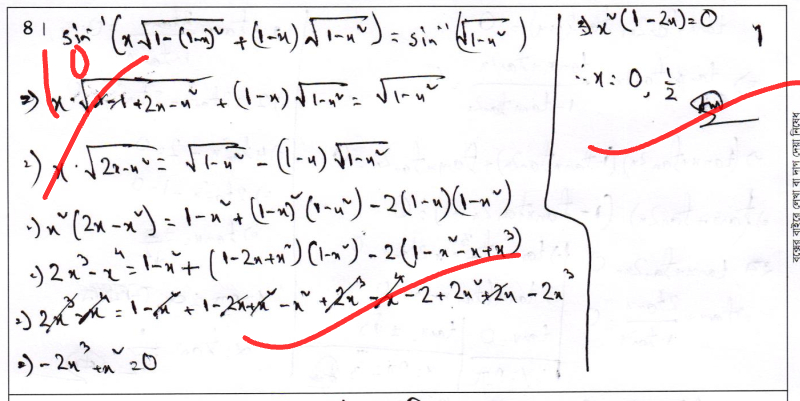 8| sin⁻¹(x√1-(1-x)² + (1-x)√1-x²) = sin⁻¹(√1-x²)
10
⇒) x·√1-1+2x-x² + (1-x)√1-x² = √1-x²
⇒) x·√2x-x² = √1-x² - (1-x)√1-x²
⇒) x²(2x-x²) = 1-x² + (1-x)²(1-x²) - 2(1-x)(1-x²)
⇒) 2x³-x⁴ = 1-x² + (1-2x+x²)(1-x²) - 2(1-x²-x+x³)
⇒) 2x³-x⁴ = 1-x² + 1-2x+x²-x²+2x³-x⁴-2+2x²+2x-2x³
⇒) -2x³+x² = 0
⇒ x²(1-2x)=0
∴ x = 0, 1/2
Ans
বক্সের বাইরে লেখা বা দাগ দেয়া নিষেধ